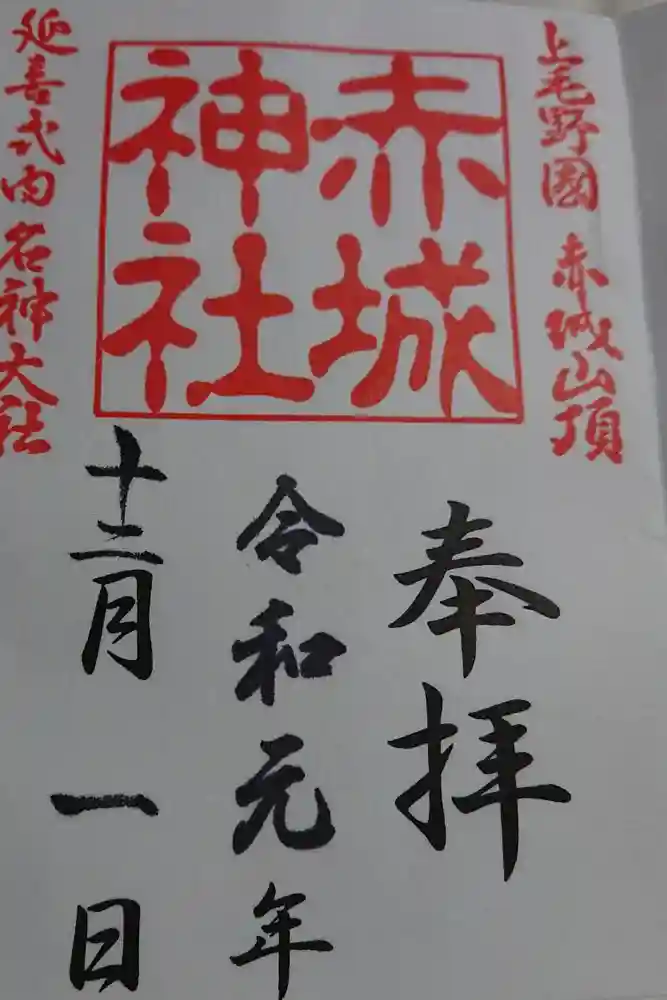 上毛野國 赤城山頂
赤城
神社
延喜式内名神大社
奉拝
令和元年
十二月一日